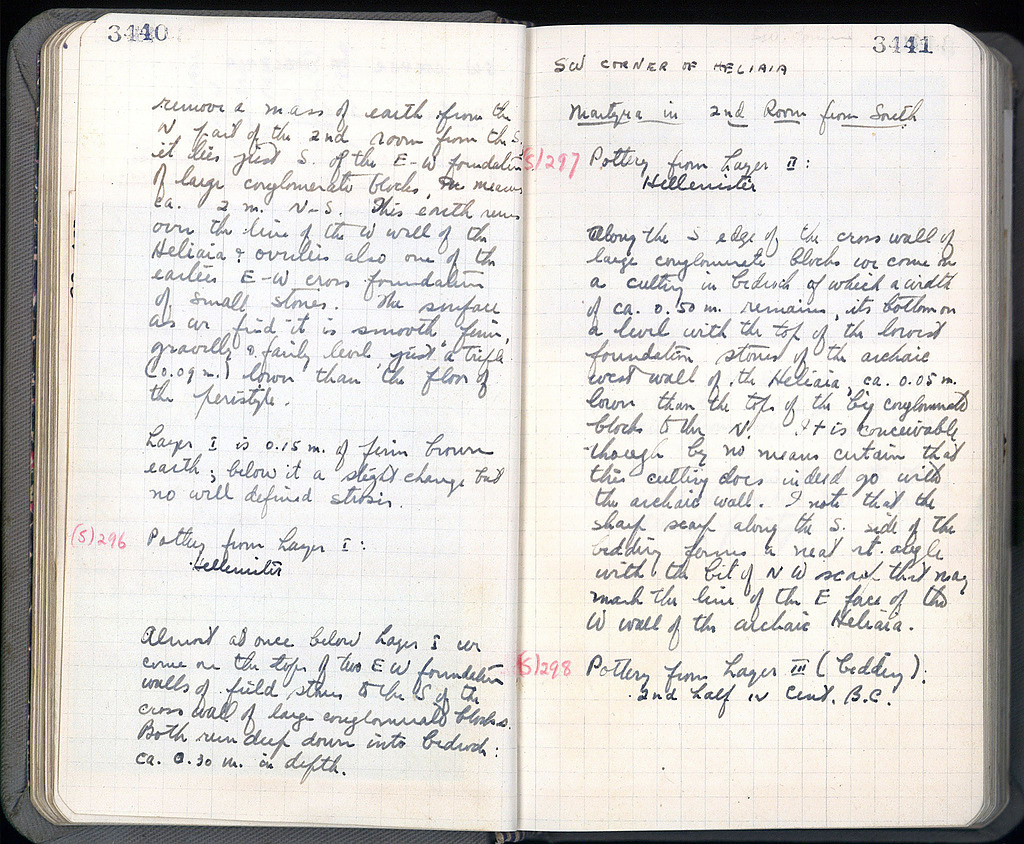 3440
remove a mass of earth from the
N part of the 2nd room from the S.
it lies just S. of the E-W foundation
of large conglomerate blocks, measures
ca. 2 m. N-S. This earth runs
over the line of the W wall of the
Heliaia & overlies also one of the
earlier E-W cross foundations
of small stones. The surface
as we find it is smooth, firm,
gravelly & fairly level, just a trifle
(0.09 m.) lower than the floor of
the peristyle.
Layer I is 0.15 m. of firm brown
earth; below it a slight change but
no well defined strosis.
(S)296 Pottery from Layer I:
Hellenistic
Almost at once below Layer I we
come on the tops of two EW foundation
walls of field stones to the S of the
cross wall of large conglomerate blocks.
Both run deep down into bedrock:
ca. 0.30 m. in depth.
3441
SW CORNER OF HELIAIA
Martyra in 2nd Room from South
(S)297 Pottery from Layer II:
Hellenistic
Along the S edge of the cross wall of
large conglomerate blocks we come on
a cutting in bedrock of which a width
of ca. 0.50 m. remains, its bottom on
a level with the top of the lowest
foundation stones of the archaic
west wall of the Heliaia, ca. 0.05 m.
lower than the tops of the big conglomerate
blocks to the N. It is conceivable,
though by no means certain that
this cutting does indeed go with
the archaic wall. I note that the
sharp scarp along the S. side of the
bedding forms a neat rt. angle
with the bit of NW scarp that may
mark the line of the E face of the
W wall of the archaic Heliaia.
(S)298 Pottery from Layer III (bedding):
2nd half IV Cent. B.C.